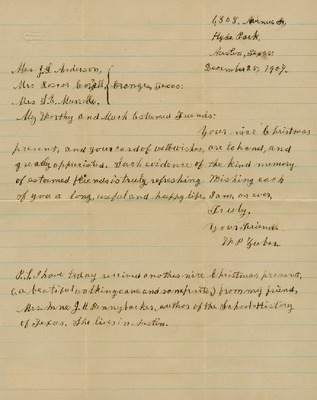 Hyde Park,
Austin, Texas:
December 28, 1907.
Mrs. J. D. Anderson,
Mrs. Oscar
Orange, Texas:
Mrs.
My Worthy and Much Esteemed Friends:
Your nice Christmas
present, and your card of well wishes, are to hand, and
greatly appreciated. Such evidence of the kind memory
of esteemed friends is truly refreshing. Wishing each
of you a long, useful and happy life, I am, as ever,
Truly,
Your friend
W. P. Zuber.
P.S. I have today received another nice Christmas present,
(a beautiful walking cane and some fruits) from my friend,
Mrs. Anna J. H. Pennybacker, author of the School History
of Texas. She lives in Austin.